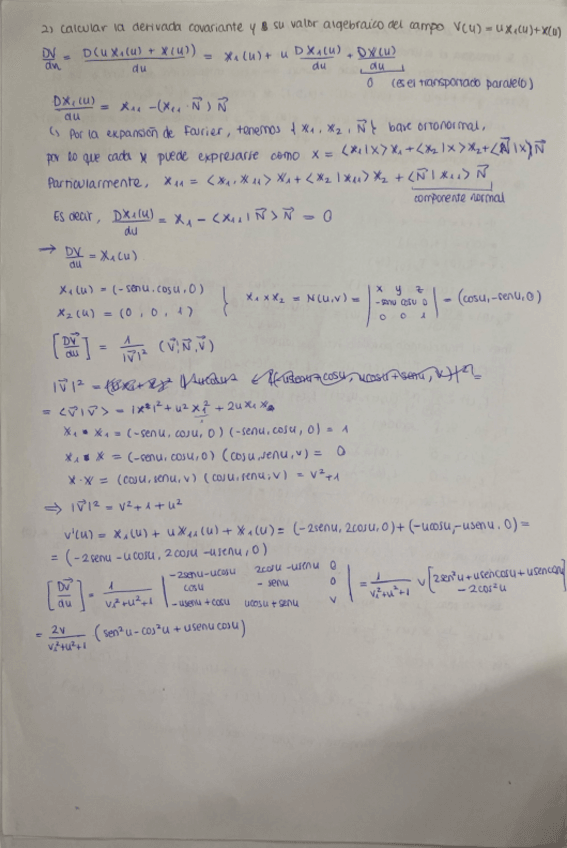 2) Calcular la derivada covariante y su valor algebraico del campo V(u) = u x₁(u) + x(u)
DV/du = D(u x₁(u) + x(u))/du = x₁(u) + u Dx₁(u)/du + Dx(u)/du
0 (es el transportado paralelo)
Dx₁(u)/du = x₁₁ - (x₁₁ · N⃗) N⃗
↳ Por la expansión de Fourier, tenemos {x₁, x₂, N⃗} base ortonormal,
por lo que cada x puede expresarse como x = <x₁|x> x₁ + <x₂|x> x₂ + <N⃗|x> N⃗
Particularmente, x₁₁ = <x₁, x₁₁> x₁ + <x₂|x₁₁> x₂ + <N⃗|x₁₁> N⃗
componente normal
Es decir, Dx₁(u)/du = x₁ - <x₁₁|N⃗> N⃗ = 0
→ DV/du = x₁(u)
x₁(u) = (-senu, cosu, 0)
x₂(u) = (0, 0, 1) } x₁ × x₂ = N(u,v) = | x y z ; -senu cosu 0 ; 0 0 1 | = (cosu, -senu, 0)
[DV⃗/du] = 1/|V⃗|² (V⃗', N⃗, V⃗)
|V⃗|² =
= <V⃗|V⃗> = |x²|² + u² x₁² + 2u x₁ x
x₁ · x₁ = (-senu, cosu, 0) (-senu, cosu, 0) = 1
x₁ · x = (-senu, cosu, 0) (cosu, senu, v) = 0
x · x = (cosu, senu, v) (cosu, senu, v) = v² + 1
⇒ |V⃗|² = v² + 1 + u²
V'(u) = x₁(u) + u x₁₁(u) + x₁(u) = (-2senu, 2cosu, 0) + (-ucosu, -usenu, 0) =
= (-2senu - ucosu, 2cosu - usenu, 0)
[DV⃗/du] = 1/(v² + u² + 1) | -2senu-ucosu 2cosu-usenu 0 ; cosu -senu 0 ; -usenu+cosu ucosu+senu v | = 1/(v² + u² + 1) v [2sen²u + usenucosu + usenucosu - 2cos²u]
= 2v/(v² + u² + 1) (sen²u - cos²u + usenu cosu)